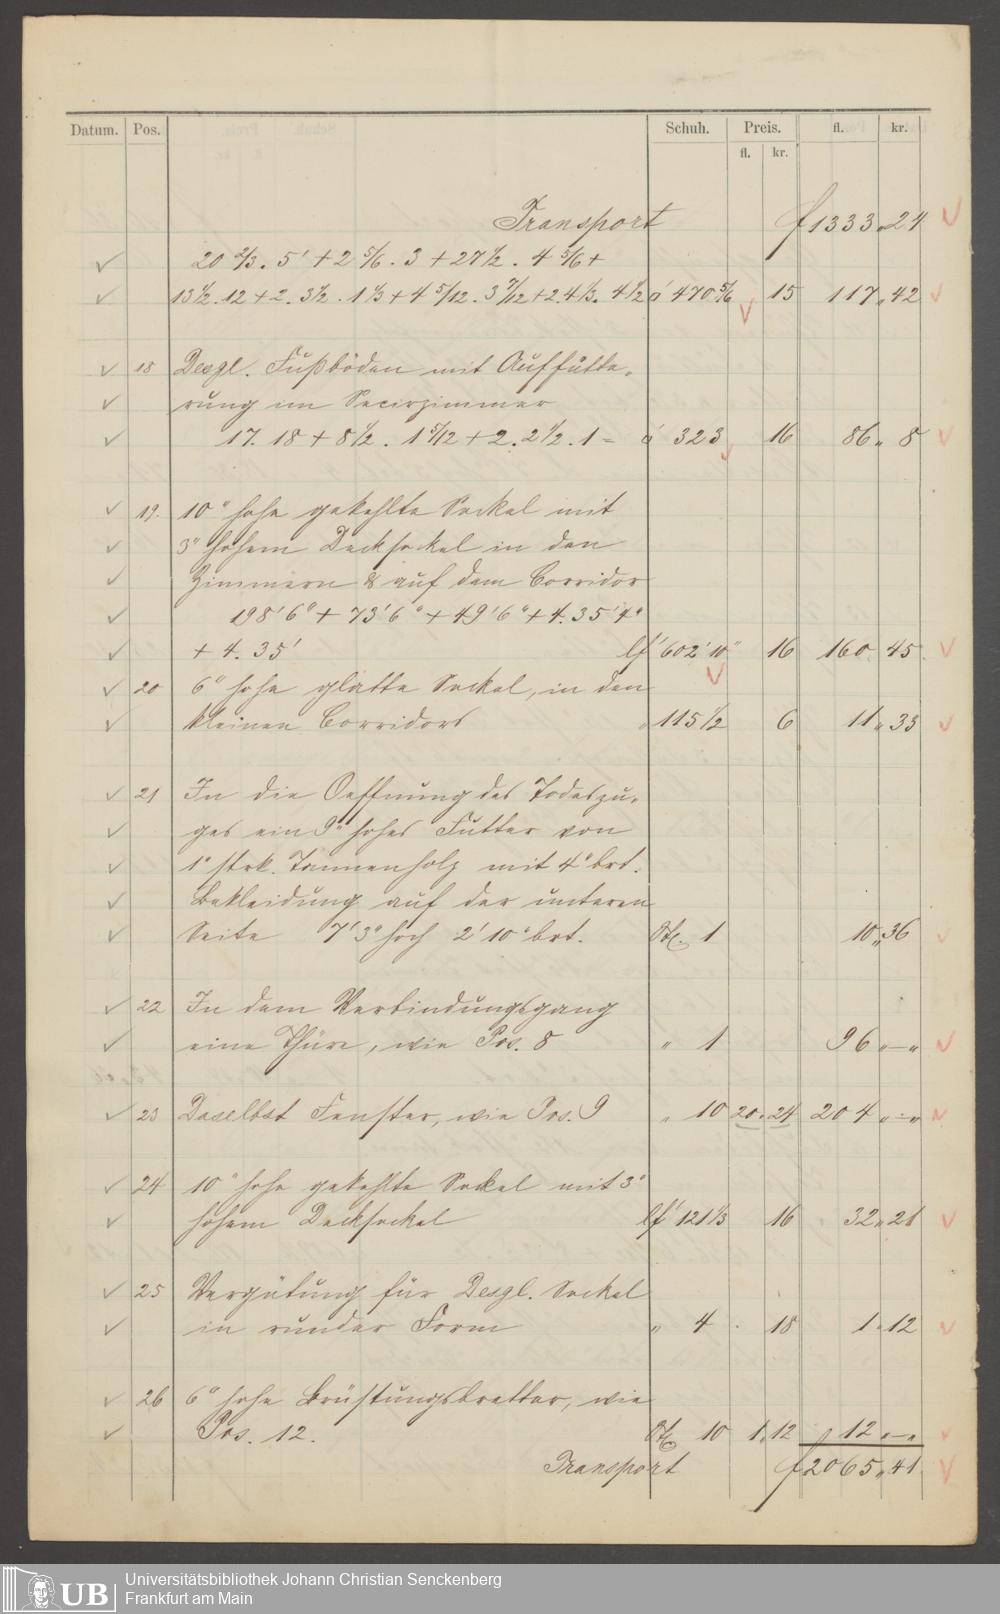 Datum. Pos. Schuh. Preis. fl. kr.
fl. kr.
Transport f 1333 „ 24
20 2/3 . 5' + 2 5/6 . 3 + 27 1/2 . 4 5/6 +
13 1/2 . 12 + 2 . 3 1/2 . 1 1/3 + 4 5/12 . 3 7/12 + 2 . 4 1/3 . 4 1/2 □' 470 5/6 15 117 „ 42
18 Desgl. Fußböden mit Auffütte-
rung im Secirzimmer
17 . 18 + 8 1/2 . 1 5/12 + 2 . 2 1/2 . 1 = □' 323 16 86 „ 8
19. 10" hohe gekehlte Sockel mit
3" hohem Decksockel in den
Zimmern & auf dem Corridor
198' 6" + 73' 6" + 49' 6" + 4 . 35' 4"
+ 4 . 35' lf' 602' 10" 16 160 „ 45
20 6" hohe glatte Sockel, in den
kleinen Corridors „ 115 1/2 6 11 „ 33
21 In die Oeffnung des Todeszu-
ges ein 9" hohes Futter von
1" strk. Tannenholz mit 4" brt.
Bekleidung auf der unteren
Seite 7' 3" hoch 2' 10" brt. Stk. 1 10 „ 36
22 In dem Verbindungsgang
eine Thüre, wie Pos. 8 „ 1 96 „ — „
23 Daselbst Fenster, wie Pos. 9 „ 10 20 . 24 204 „ — „
24 10" hohe gekehlte Sockel mit 3"
hohem Decksockel lf' 121 1/3 16 32 „ 21
25 Vergütung für Desgl. Sockel
in runder Form „ 4 . 18 1 . 12
26 6" hohe Brüstungsbretter, wie
Pos. 12. Stk. 10 1 . 12 12 „ — „
Transport f 2065 „ 41
UB Universitätsbibliothek Johann Christian Senckenberg
Frankfurt am Main